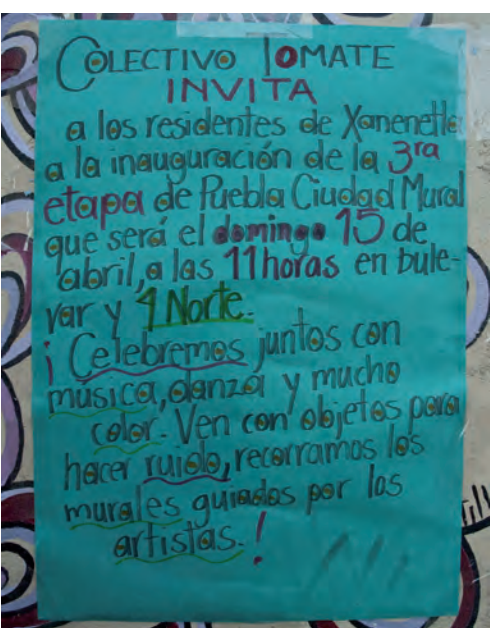 COLECTIVO TOMATE
INVITA
a los residentes de Xanenetla
a la inauguración de la 3ra
etapa de Puebla Ciudad Mural
que será el domingo 15 de
abril, a las 11 horas en bule-
var y 4 Norte.
¡Celebremos juntos con
música, danza y mucho
color. Ven con objetos para
hacer ruido, recorramos los
murales guiados por los
artistas.!